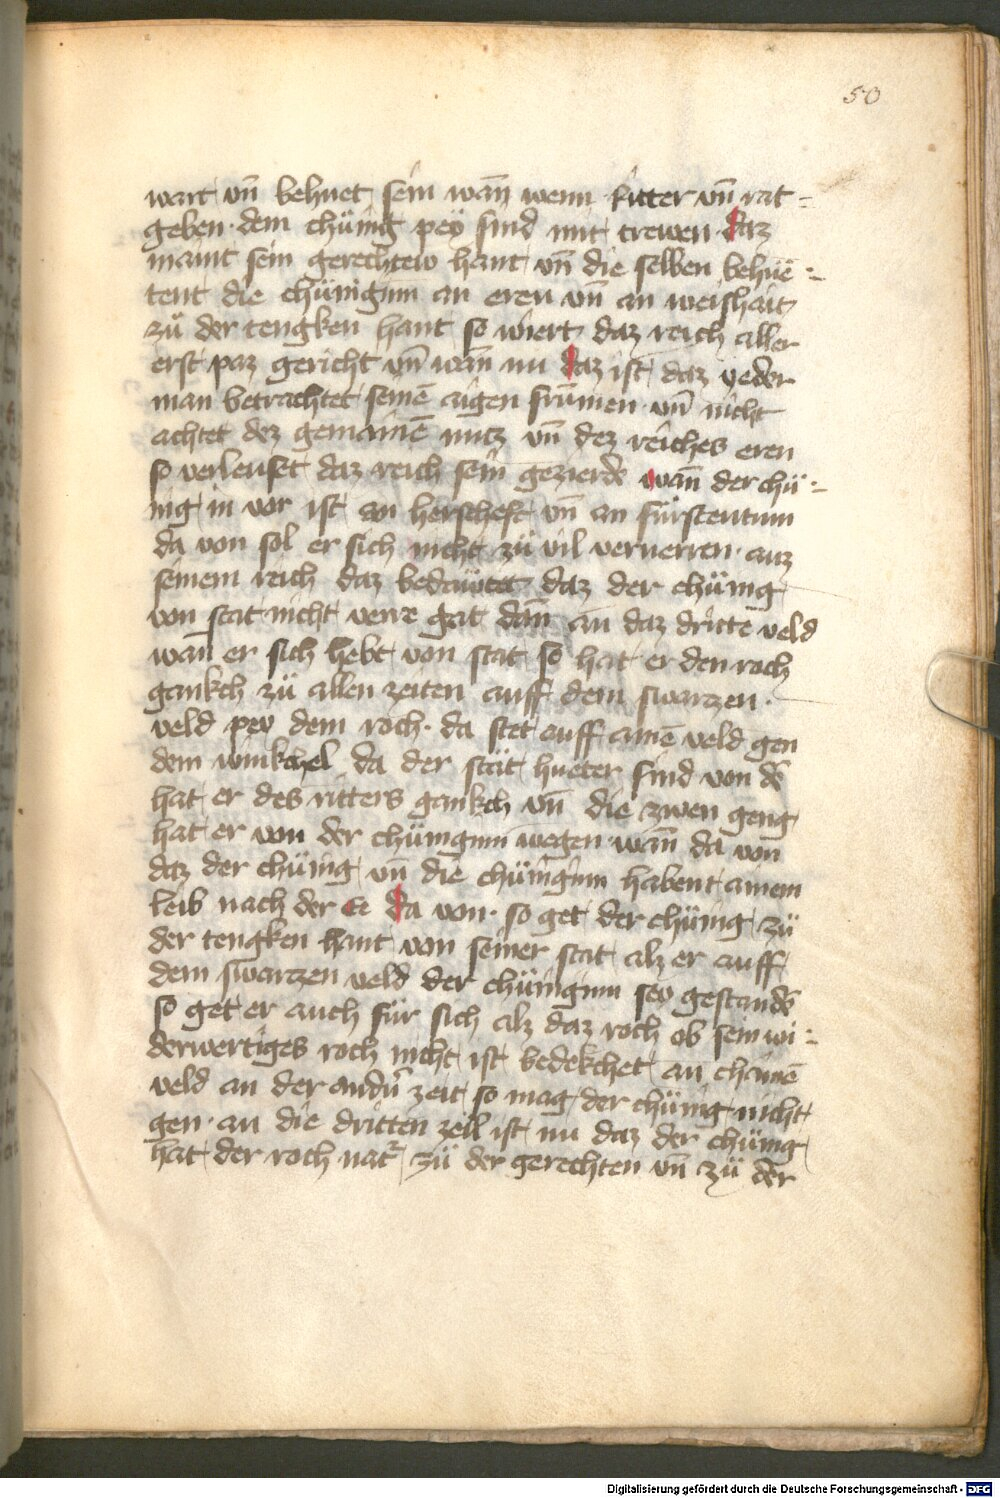 50
wart vn̄ behuet sein wan̄ wenn ritter vn̄ rat-
geben dem chünig pey sind mit trewen daz
maint sein gerechtew hant vn̄ die selben behuē-
tent die chünigīnn an eren vn̄ an weishait
zü der tengken hant so wiert daz reich aller
erst paz gericht vn̄ wan̄ nu daz ist daz yeder
man betrachtet seinē aigen frūmen vn̄ nicht
achtet dez gemainē nutz vn̄ dez reiches eren
so verleuset daz reich sein gezierde wan̄ der chü-
nig in vor ist an herscheft vn̄ an fürstentum
da von sol er sich nicht zü vil veruerren auz
seinem reich daz bedäwtet daz der chünig
von stat nicht verre gat dan̄ an daz drittē veld
wan̄ er sich hebt von stat so hat er den roch
gankch zü allen zeiten auff dem swarzen
veld pey dem roch da stet auff ainē veld gen
dem winkchel da der stat hueter sind von dē
hat er des ritters gankch vn̄ die zwen geng
hat er von der chünignn wegen wan̄ da von
daz der chünig vn̄ die chüniginn habent ainem
leib nach der Ee da von so get der chünig zü
der tengken hant von seiner stat alz er auff
dem swartzen veld der chüniginn sey gestandē
so get er auch für sich alz daz roch ob sein wi-
derwertiges roch nicht ist bedekchet an chainē
veld an der andn̄ zeit so mag der chünig nicht
gen an die dritten zeil ist nu daz der chünig
hat der roch nat' zü der gerechten vn̄ zü der
Digitalisierung gefördert durch die Deutsche Forschungsgemeinschaft - DFG